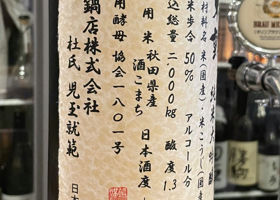 純米大吟醸
材料名 米(国産)・米こうじ(国産
米歩合 50% アルコール分
込総量 二〇〇〇kg 酸度 1.3
用米 秋田県産 酒こまち 日本酒度
用酵母 協会一八〇一号
鍋店株式会社
杜氏 児玉就範
日本
BRAU MEISTER